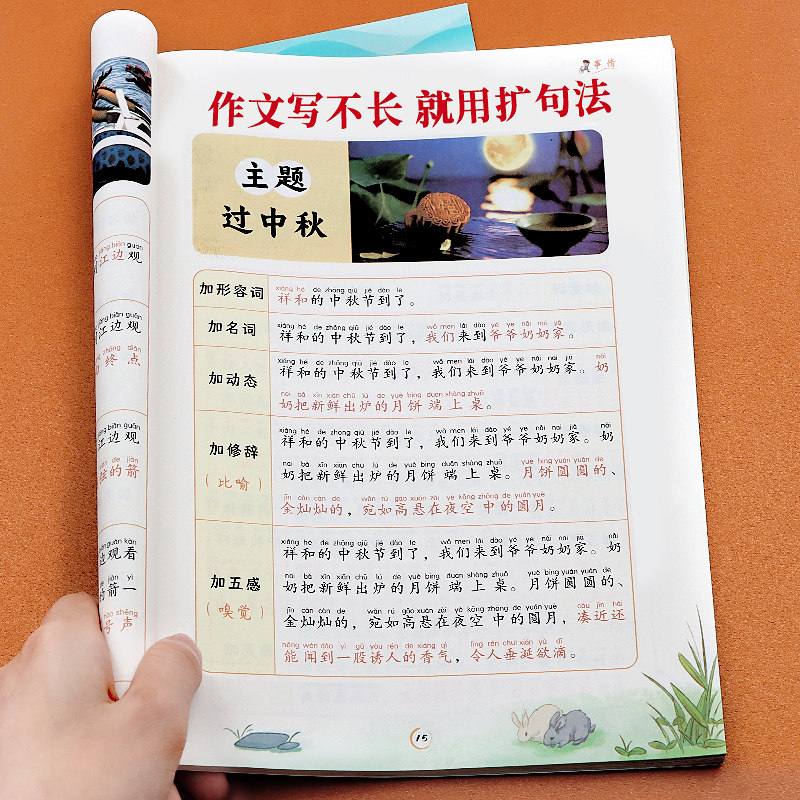 事情
作文写不长 就用扩句法
主题
过中秋
加形容词
xiáng hé de zhōng qiū jié dào le
祥和的中秋节到了。
加名词
xiáng hé de zhōng qiū jié dào le wǒ men lái dào yé ye nǎi nai jiā
祥和的中秋节到了，我们来到爷爷奶奶家。
加动态
xiáng hé de zhōng qiū jié dào le wǒ men lái dào yé ye nǎi nai jiā nǎi
祥和的中秋节到了，我们来到爷爷奶奶家。奶
nai bǎ xīn xiān chū lú de yuè bing duān shàng zhuō
奶把新鲜出炉的月饼端上桌。
加修辞
（比喻）
xiáng hé de zhōng qiū jié dào le wǒ men lái dào yé ye nǎi nai jiā nǎi
祥和的中秋节到了，我们来到爷爷奶奶家。奶
nai bǎ xīn xiān chū lú de yuè bing duān shàng zhuō yuè bing yuán yuán de
奶把新鲜出炉的月饼端上桌。月饼圆圆的、
jīn càn càn de wǎn rú gāo xuán zài yè kōng zhōng de yuán yuè
金灿灿的，宛如高悬在夜空中的圆月。
加五感
（嗅觉）
xiáng hé de zhōng qiū jié dào le wǒ men lái dào yé ye nǎi nai jiā nǎi
祥和的中秋节到了，我们来到爷爷奶奶家。奶
nai bǎ xīn xiān chū lú de yuè bing duān shàng zhuō yuè bing yuán yuán de
奶把新鲜出炉的月饼端上桌。月饼圆圆的、
jīn càn càn de wǎn rú gāo xuán zài yè kōng zhōng de yuán yuè còu jìn hái
金灿灿的，宛如高悬在夜空中的圆月，凑近还
néng wén dào yì gǔ yòu rén de xiāng qì lìng rén chuí xián yù dī
能闻到一股诱人的香气，令人垂涎欲滴。
15
jiāng biān guān
江边观
jiāng biān guān
江边观
zhōng diǎn
终点
jiāng biān guān
江边观
的箭
guān kàn
边观看
de jiàn yì
的箭一
shēng
号声